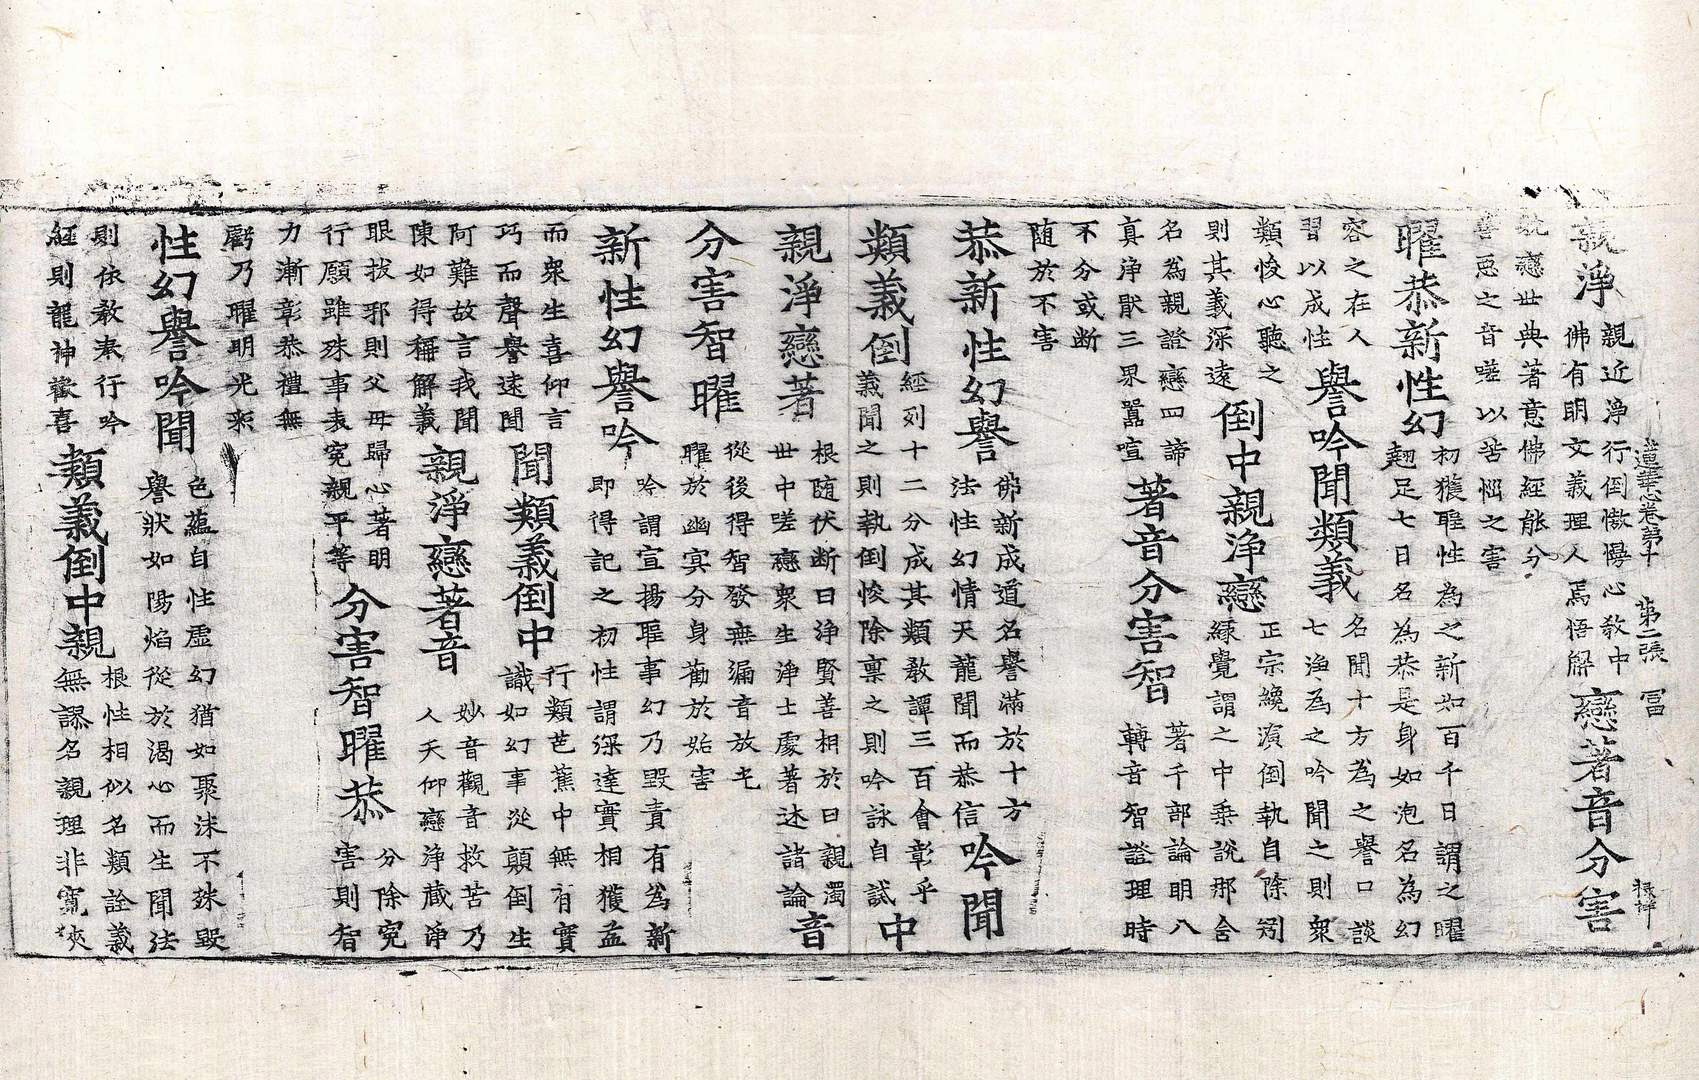 蓮華心卷第十 第二張 冨
親淨
親近淨行倒慠㥽心教中
佛有明文義理人焉悟解
戀著音分害
耽戀世典著意佛經能分
善惡之音嗟以苦惱之害
曜恭新性幻
初獲聖性為之新如百千日謂之曜
翹足七日名為恭是身如泡名為幻
容之在人
習以成性
譽吟聞類義
名聞十方為之譽口談
七漁為之吟聞之則眾
類悛心聽之
則其義深遠
倒中親淨戀
正宗纔演倒執自除剏
緣覺謂之中乘說那含
名為親證戀四諦
真淨猒三界囂喧
著音分害智
著千部論明八
轉音智證理時
不分或断
随於不害
恭新性幻譽
佛新成道名譽滿於十方
法性幻情天龍聞而恭信
吟聞
類義倒
經列十二分成其類教譚三百會彰乎
義聞之則執倒悛除稟之則吟詠自試
中
親淨戀著
根随伏断曰淨賢善相於曰親濁
世中嗟戀眾生淨土處著述諸論
音
分害智曜
從後得智發無漏音放七
曜於幽㝠分身勸於始害
新性幻譽吟
吟謂宣揚聖事幻乃毀責有為新
即得記之初性謂深達實相獲益
而眾生喜仰言
巧而聲譽遠聞
聞類義倒中
行類芭蕉中無有實
識如幻事從顛倒生
阿難故言我聞
陳如得稱解義
親淨戀著音
妙音觀音救苦乃
人天仰戀淨藏淨
眼拔邪則父母歸心著明
行願雖殊事表寃親平等
分害智曜恭
分除寃
害則智
力漸彰恭禮無
虧乃曜明光彩
性幻譽吟聞
色蘊自性虛幻猶如聚沫不殊毀
譽狀如陽焰從於渴心而生聞法
則依教奉行吟
經則龍神歡喜
類義倒中親
根性相似名類詮義
無謬名親理非寬狹